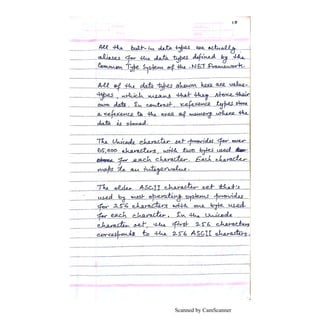 18
All the built-in data types are actually
aliases for the data types defined by the
Common Type System of the .NET Framework.
All of the data types shown here are value-
types, which means that they store their
own data. In contrast, reference types store
a reference to the area of memory where the
data is stored.
The Unicode character set provides for over
65,000 characters, with two bytes used
for each character. Each character
maps to an integer value.
The older ASCII character set that's
used by most operating systems provides
for 256 characters with one byte used
for each character. In the Unicode
character set, the first 256 characters
corresponds to the 256 ASCII characters.
Scanned by CamScanner